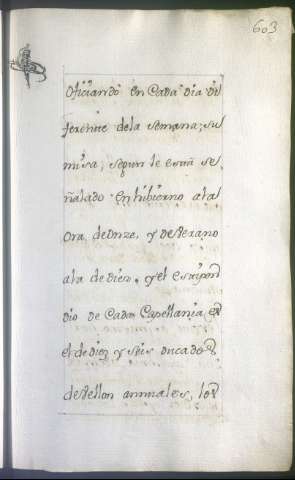 603
Oficiando en Cada dia di
ferente dela semana; su
misa, segun le està se
ñalado En hibierno a la
Ora, de Onze, y de Verano
a la de diez, y el estipen
dio de Cada Capellania es
el de diez y seis ducados
de Vellon annuales, los